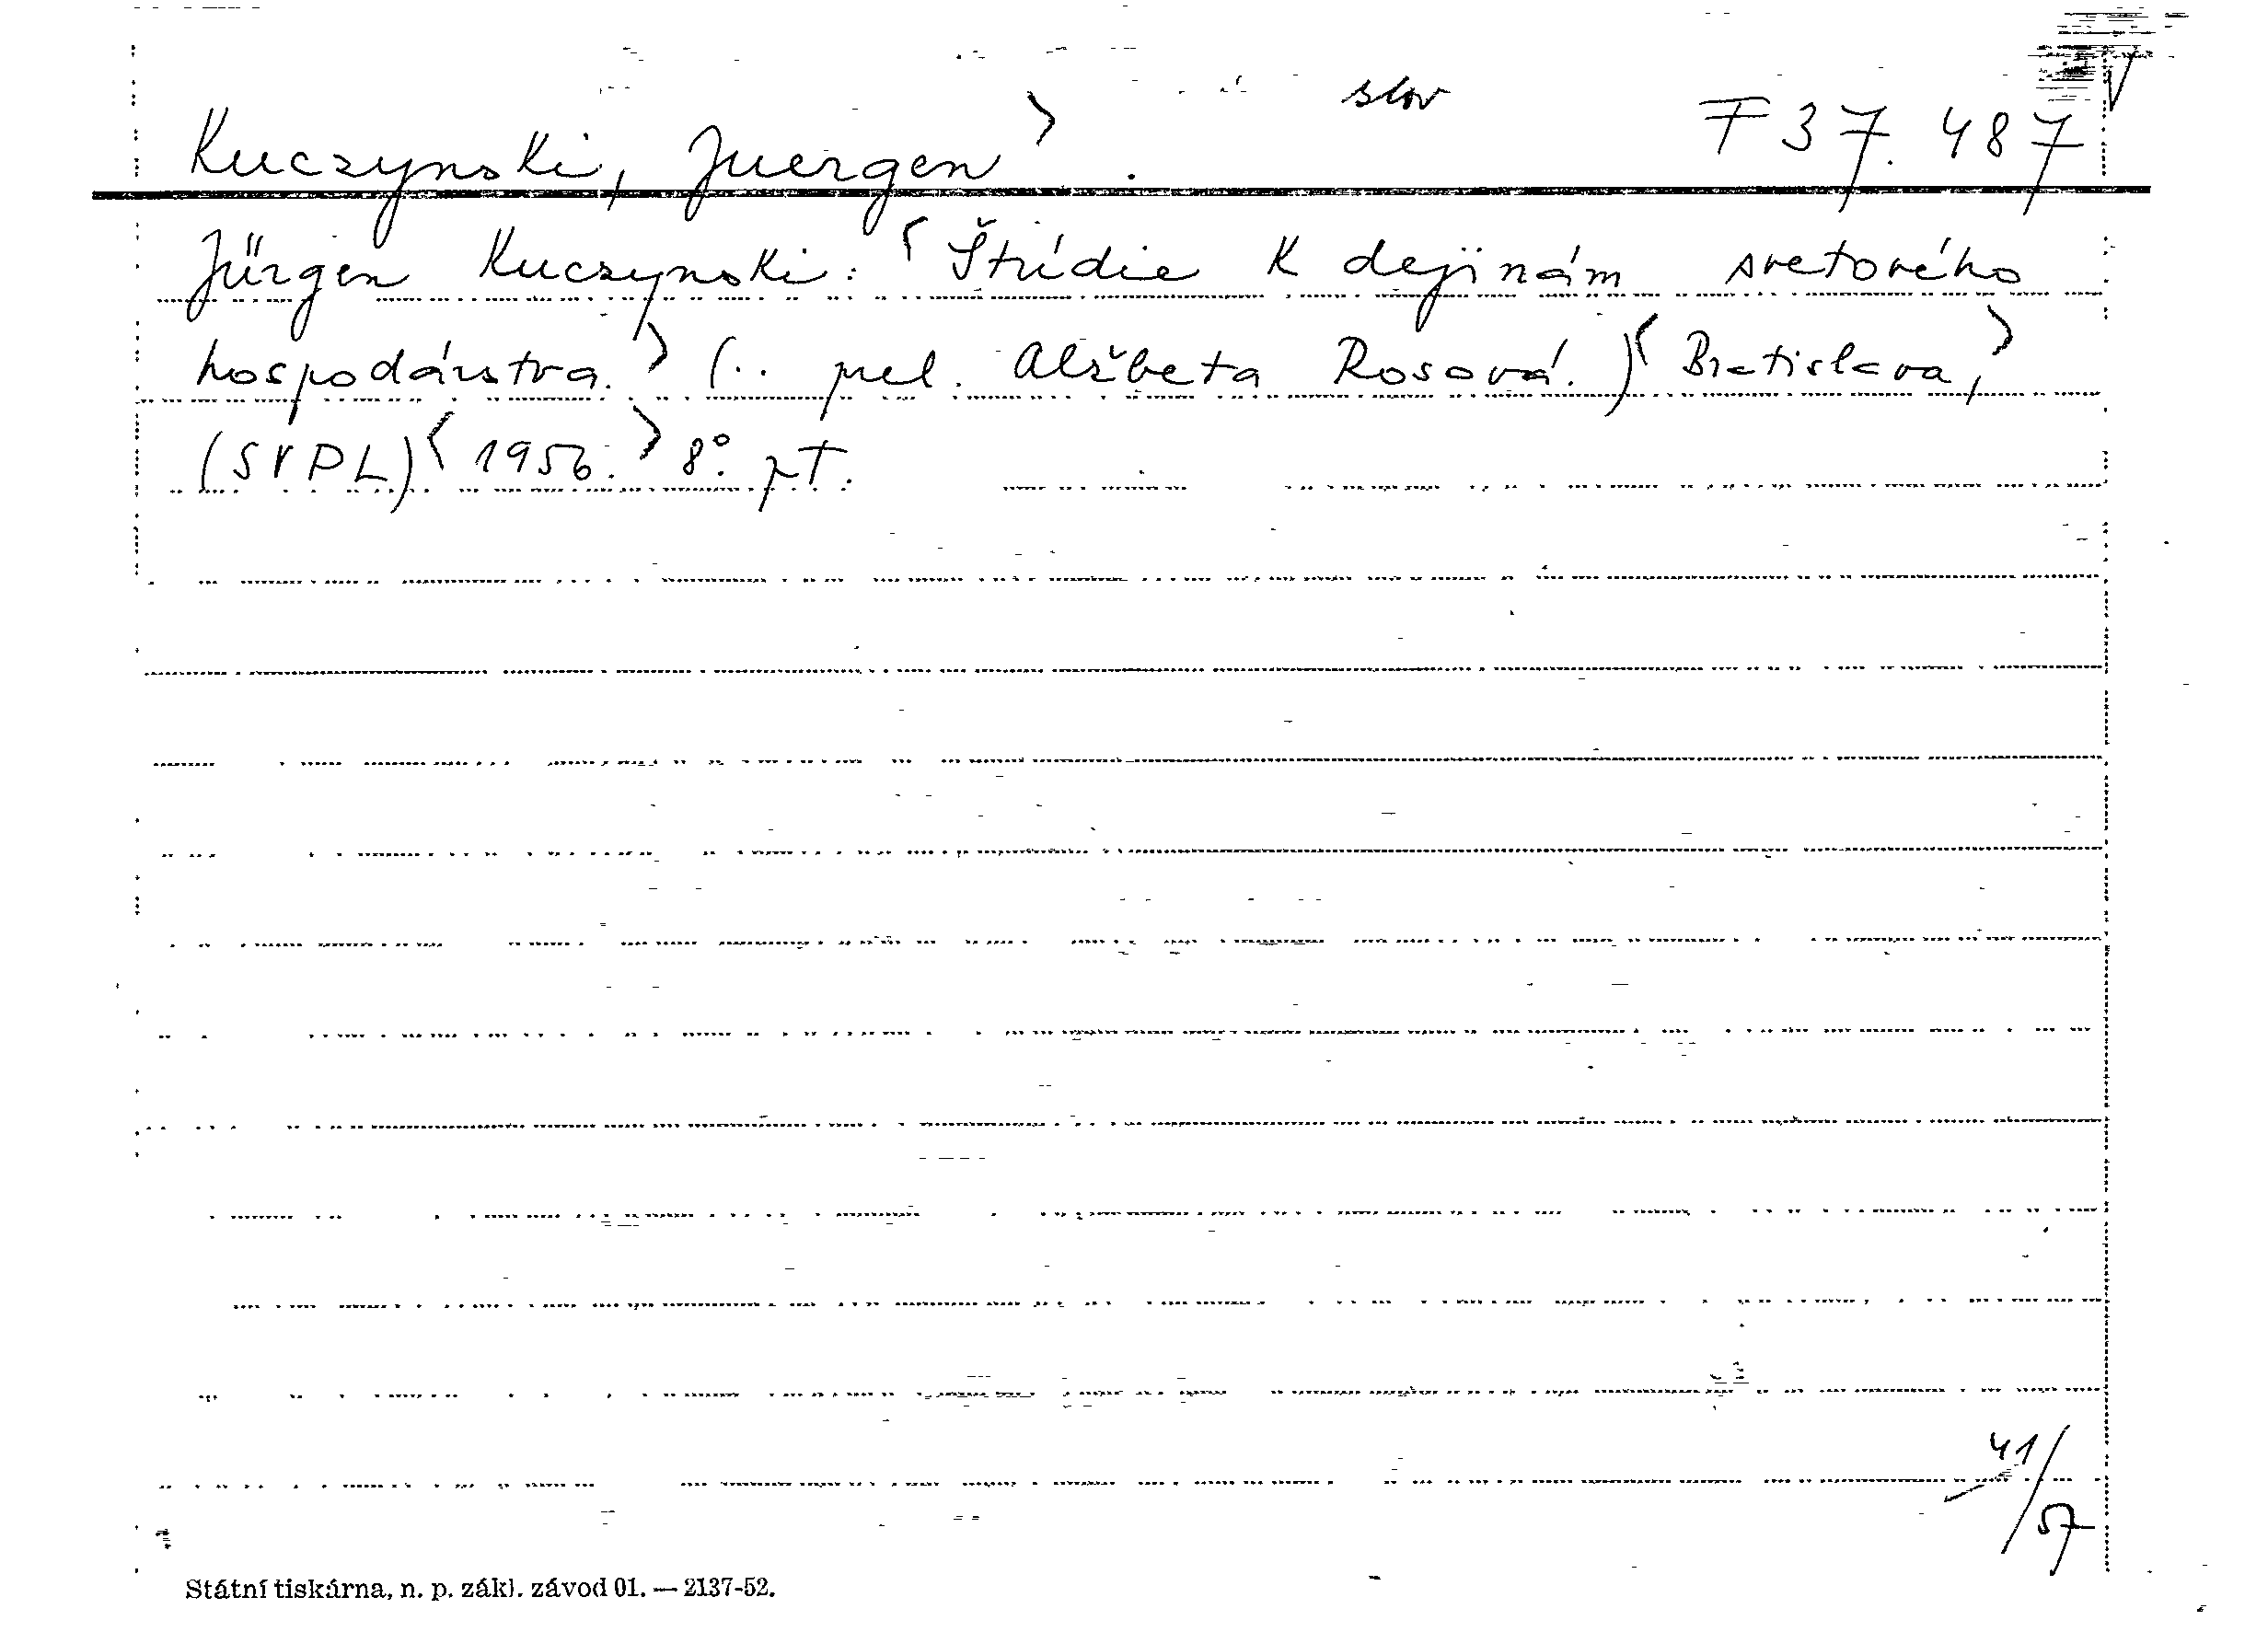 slov
Kuczynski, Juergen > . F 37.487
Jürgen Kuczynski: < Štúdie k dejinám svetového
hospodárstva. > (.. prel. Alžbeta Rosová.) < Bratislava, >
(SVPL) < 1956. > 8°. pt.
41/57
Státní tiskárna, n. p. zákl. závod 01. — 2137-52.